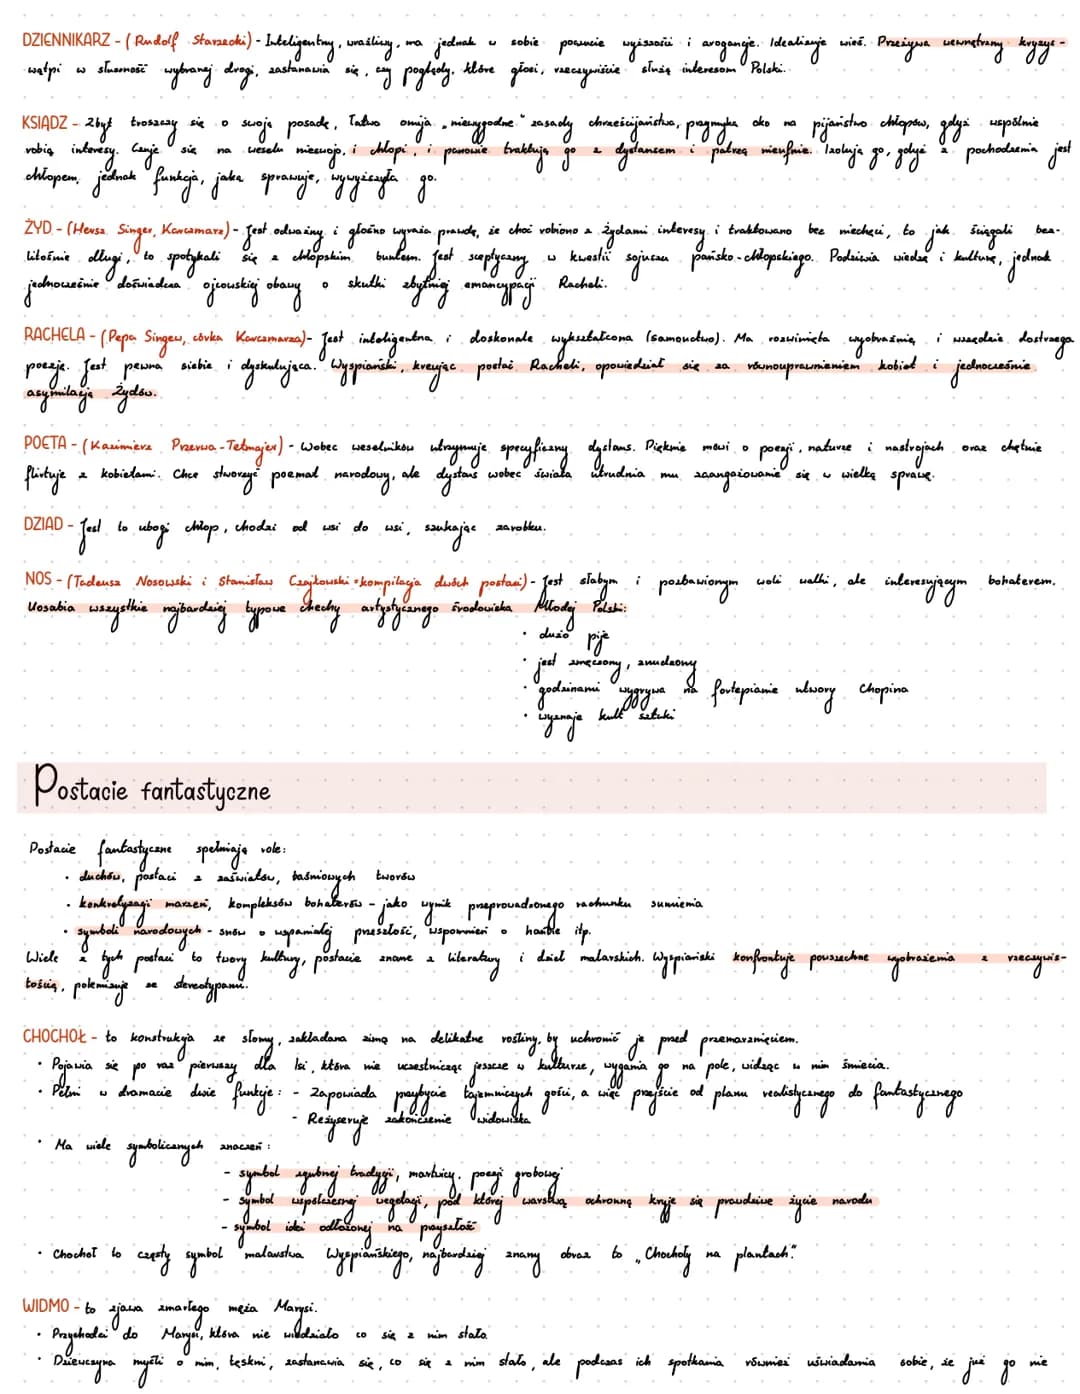 DZIENNIKARZ - (Rudolf Starzecki) - Inteligentny, wrażliwy, ma jednak w sobie poczucie wyższości i arogancję. Idealizuje wieś. Przeżywa wewnętrzny kryzys -
wątpi w słuszność wybranej drogi, zastanawia się, czy poglądy, które głosi, rzeczywiście służą interesom Polski.
KSIĄDZ - Zbyt troszczy się o swoją posadę, łatwo omija „niewygodne" zasady chrześcijaństwa, przymyka oko na pijaństwo chłopów, gdyż wspólnie
robią interesy. Czuje się na weselu nieswojo, i chłopi, i panowie traktują go z dystansem i patrzą nieufnie. Izolują go, gdyż z pochodzenia jest
chłopem, jednak funkcja, jaką sprawuje, wywyższyła go.
ŻYD - (Hersz Singer, Karczmarz) - Jest odważny i głośno wyraża prawdę, że choć robiono z żydami interesy i traktowano bez niechęci, to jak ściągali bez-
litośnie długi, to spotykali się z chłopskim buntem. Jest sceptyczny w kwestii sojuszu pańsko-chłopskiego. Podziwia wiedzę i kulturę, jednak
jednocześnie doświadcza ojcowskiej obawy o skutki zbytniej emancypacji Racheli.
RACHELA - (Pepa Singer, córka Karczmarza) - Jest inteligentna i doskonale wykształcona (samouctwo). Ma rozwiniętą wyobraźnię i wszędzie dostrzega
poezję. Jest pewna siebie i dyskutująca. Wyspiański, kreując postać Racheli, opowiedział się za równouprawnieniem kobiet i jednocześnie
asymilacją Żydów.
POETA - (Kazimierz Przerwa-Tetmajer) - Wobec weselników utrzymuje specyficzny dystans. Pięknie mówi o poezji, naturze i nastrojach oraz chętnie
flirtuje z kobietami. Chce stworzyć poemat narodowy, ale dystans wobec świata utrudnia mu zaangażowanie się w wielką sprawę.
DZIAD - Jest to ubogi chłop, chodzi od wsi do wsi, szukając zarobku.
NOS - (Tadeusz Nosowski i Stanisław Czajkowski = kompilacja dwóch postaci) - Jest słabym i pozbawionym woli walki, ale interesującym bohaterem.
Uosabia wszystkie najbardziej typowe cechy artystycznego środowiska Młodej Polski:
• dużo pije
• jest zmęczony, znudzony
• godzinami wygrywa na fortepianie utwory Chopina
• wyznaje kult sztuki
Postacie fantastyczne
Postacie fantastyczne spełniają role:
• duchów, postaci z zaświatów, baśniowych tworów
• konkretyzacji marzeń, kompleksów bohaterów - jako wynik przeprowadzonego rachunku sumienia
• symboli narodowych - snów o wspaniałej przeszłości, wspomnień o hańbie itp.
Wiele z tych postaci to twory kultury, postacie znane z literatury i dzieł malarskich. Wyspiański konfrontuje powszechne wyobrażenia z rzeczywis-
tością, polemizuje ze stereotypami.
CHOCHOŁ - to konstrukcja ze słomy, zakładana zimą na delikatne rośliny, by uchronić je przed przemarznięciem.
• Pojawia się po raz pierwszy dla Isi, która nie uczestnicząc jeszcze w kulturze, wygania go na pole, widząc w nim śmiecia.
• Pełni w dramacie dwie funkcje: - Zapowiada przybycie tajemniczych gości, a więc przejście od planu realistycznego do fantastycznego
- Reżyseruje zakończenie widowiska
• Ma wiele symbolicznych znaczeń:
- symbol zgubnej tradycji, martwicy, poezji grobowej
- symbol współczesnej wegetacji, pod której warstwą ochronną kryje się prawdziwe życie narodu
- symbol idei odłożonej na przyszłość
• Chochoł to częsty symbol malarstwa Wyspiańskiego, najbardziej znany obraz to „Chochoły na plantach".
WIDMO - to zjawa zmarłego męża Marysi.
• Przychodzi do Marysi, która nie wiedziała co się z nim stało
• Dziewczyna myśli o nim, tęskni, zastanawia się, co się z nim stało, ale podczas ich spotkania również uświadamia sobie, że już go nie